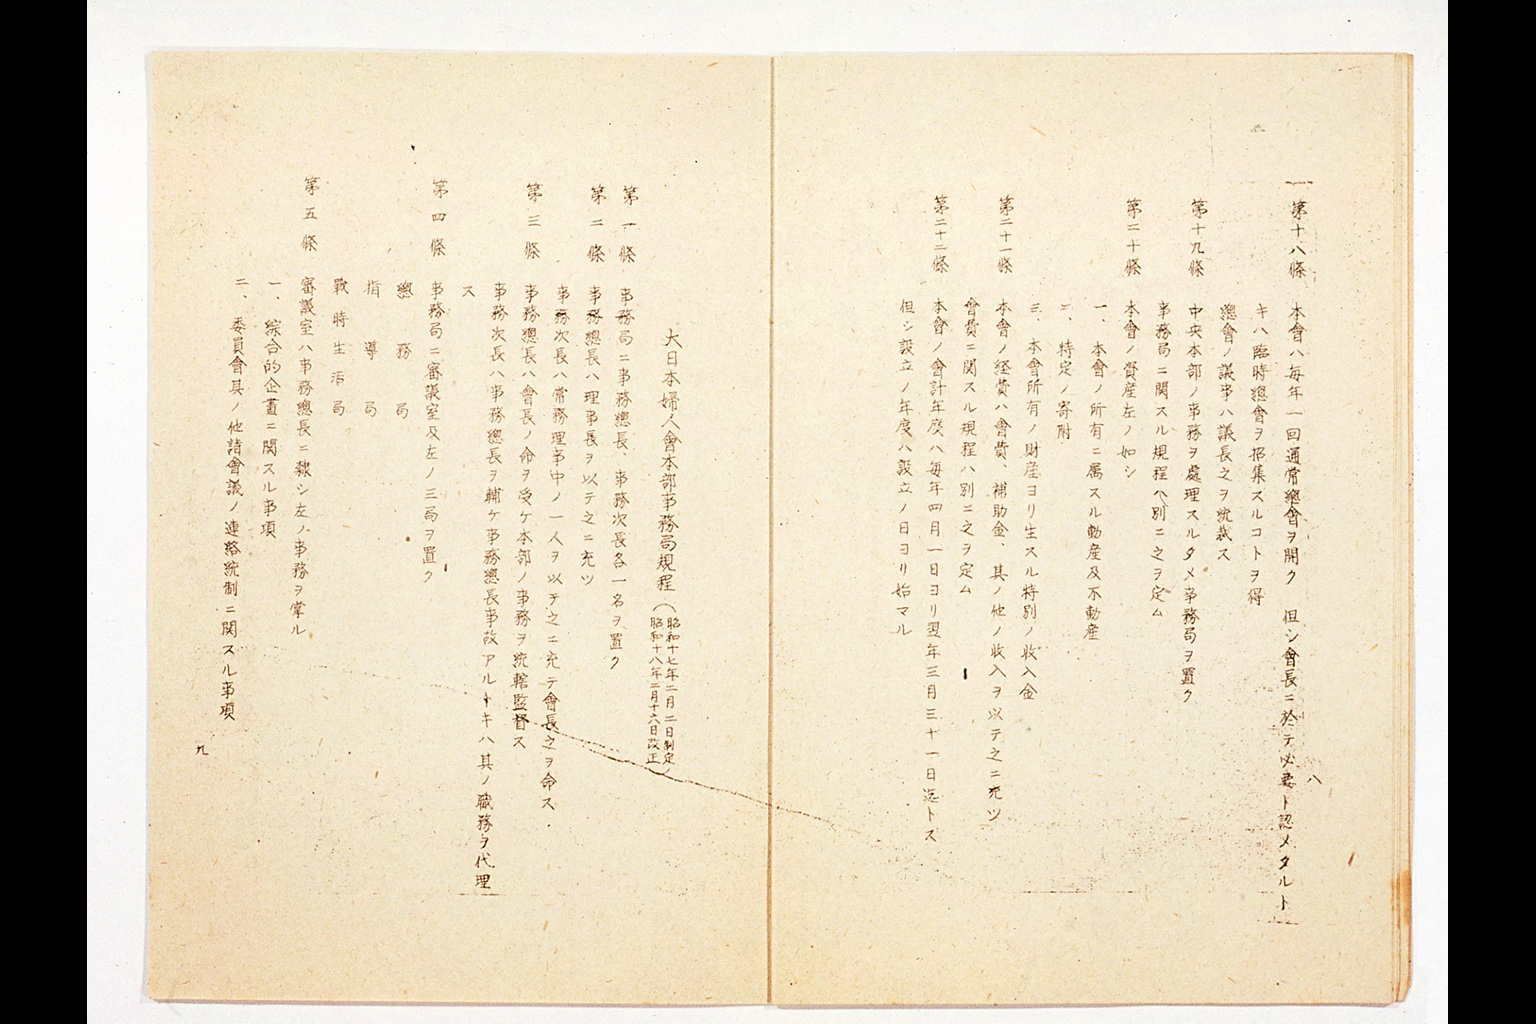 第十八條　本會ハ每年一回通常總會ヲ開ク　但シ會長ニ於テ必要ト認メタルト
キハ臨時總會ヲ招集スルコトヲ得
總會ノ議事ハ議長之ヲ統裁ス
第十九條　中央本部ノ事務ヲ處理スルタメ事務局ヲ置ク
事務局ニ関スル規程ハ別ニ之ヲ定ム
第二十條　本會ノ資産左ノ如シ
一、本會ノ所有ニ属スル動産及不動産
二、特定ノ寄附
三、本會所有ノ財産ヨリ生スル特別ノ收入金
第二十一條　本會ノ経費ハ會費、補助金、其ノ他ノ收入ヲ以テ之ニ充ツ
會費ニ関スル規程ハ別ニ之ヲ定ム
第二十二條　本會ノ會計年度ハ每年四月一日ヨリ翌年三月三十一日迄トス
但シ設立ノ年度ハ設立ノ日ヨリ始マル
八
大日本婦人會本部事務局規程（昭和十七年二月二日制定
昭和十八年二月十六日改正）
第一條　事務局ニ事務總長、事務次長各一名ヲ置ク
第二條　事務總長ハ理事長ヲ以テ之ニ充ツ
事務次長ハ常務理事中ノ一人ヲ以テ之ニ充テ會長之ヲ命ス
第三條　事務總長ハ會長ノ命ヲ受ケ本部ノ事務ヲ統轄監督ス
事務次長ハ事務總長ヲ輔ケ事務總長事故アルトキハ其ノ職務ヲ代理
ス
第四條　事務局ニ審議室及左ノ三局ヲ置ク
總務局
指導局
戰時生活局
第五條　審議室ハ事務總長ニ隸シ左ノ事務ヲ掌ル
一、綜合的企畫ニ関スル事項
二、委員會其ノ他諸會議ノ連絡統制ニ関スル事項
九